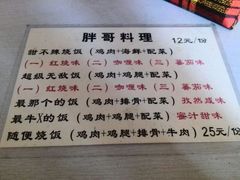 胖哥料理
12元/份
甜不辣烧饭 (鸡肉+海鲜+配菜)
(一) 红烧味 (二) 咖喱味 (三) 蕃茄味
超级无敌饭 (鸡肉+鸡腿+配菜)
(一) 红烧味 (二) 咖喱味 (三) 蕃茄味
最那个的饭 (鸡肉+排骨+配菜) 孜然咸味
最牛X的饭 (鸡肉+鸡腿+配菜) 蜜汁甜味
随便烧饭 (鸡肉+鸡腿+排骨+牛肉) 25元/份